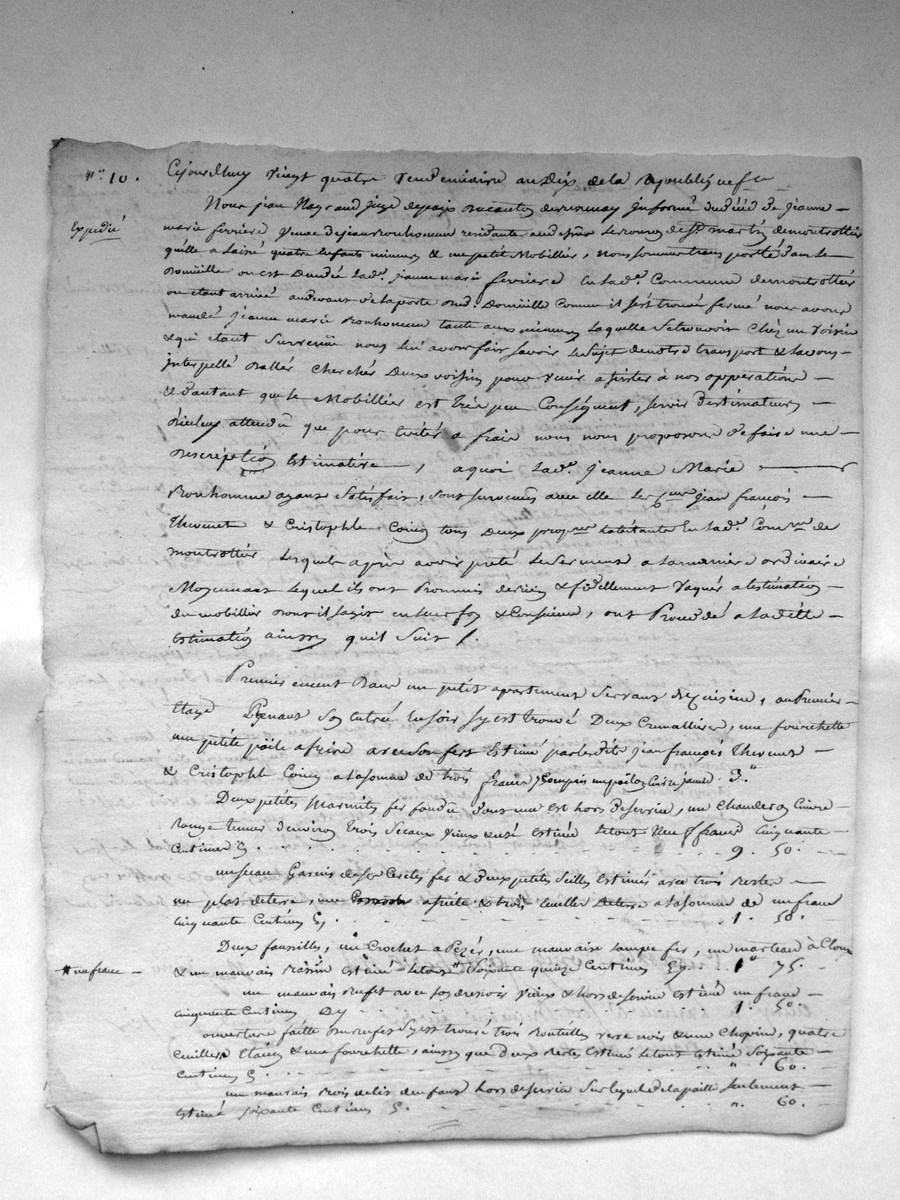 n° 10. Cejourdhuy vingt quatre vendemiaire an dix de la Republique fse
Nous jean juge depaix du canton informé du déces de jeanne
Expedié
marie ferriere veuve dejean bonhomme residante de St martin demontrottier
quelle a laissé quatre enfants mineurs & un petit Mobillier, nous sommes transporté dans le
Domicille ou est Decedée lade. jeanne marie ferriere en lade. Commune demontrottier
ou etant arrivé audevant dela porte dud. Domicille comme il sest trouvé fermé nous avons
mandé jeanne marie Bonhomme tante aux mineurs laquelle setrouvoit chez un voisin
& qui etant survenüe nous lui avons fait savoir le sujet denotre transport & lavons
interpellé dallér cherchér deux voisins pour venir assister à nos opperations
& dautant que le Mobillier est trés peu Conséquent, servir destimateurs
dicelluy attendu que pour evitér a frais nous nous proposons defaire une
description Estimative, aquoi lade. jeanne Marie
Bonhomme ayant satisfait, sont survenus avec elle les jean françois
Thevenet & Cristophle Coing tous deux propres habitants en lade. Comune de
montrottiér lesquels après avoir preté le serment a la maniere ordinaire
Moyennant lequel ils ont Promis de bien & fidellement vaquér alestimation
du mobillier dont il sagit en leur foy & Consience, ont Procedé a ladite
estimation ainssy quil suit /.
Premierement dans un petit apartement servant decuisine, au Premier
Etage Prenant son entrée en soir sy est trouvé deux Cremalliere, une fourchette
une petite poile afrire avec son fert estimé par lesdits jean françois Thevenet
& Cristophle Coing alasomme de trois francs, Compris un poilon Cuivre jaune 3."
Deux petites Marmites fer fondu dont une est hors deservice, un chauderon Cuivre
rouge tenant denviron trois seaux vieux & usé estimé letout Neuf francs cinquante
Centimes Cy. 9. 50.
un seau Garnis deses Cercles fer & deux petites seilles estimés avec trois
un plat deterre, une assiete & trois cueiller deterre alasomme de un franc
cinquante Centimes Cy. 1. 50.
Deux faussilles, un Crochet a Pezér, une mauvaise lampe fer, un marteau à Cloux
# un franc
& un mauvais estimé letout # soixante quinze Centimes Cy. 1" 75.
un mauvais Bufet avec son dressoir vieux & hors deservice estimé un franc
cinquante Centimes Cy 1. 50.
ouverture faitte du Bufet sy est trouvé trois Bouteilles verre noir & une Chopine, quatre
Cueillers Etaing & une fourchette, ainssy que deux estimé letout estimé soixante
Centimes Cy. " 60.
un mauvais bois delit hors deservice sur lequel de la paille seulement
estimé soixante Centimes Cy. ". 60.